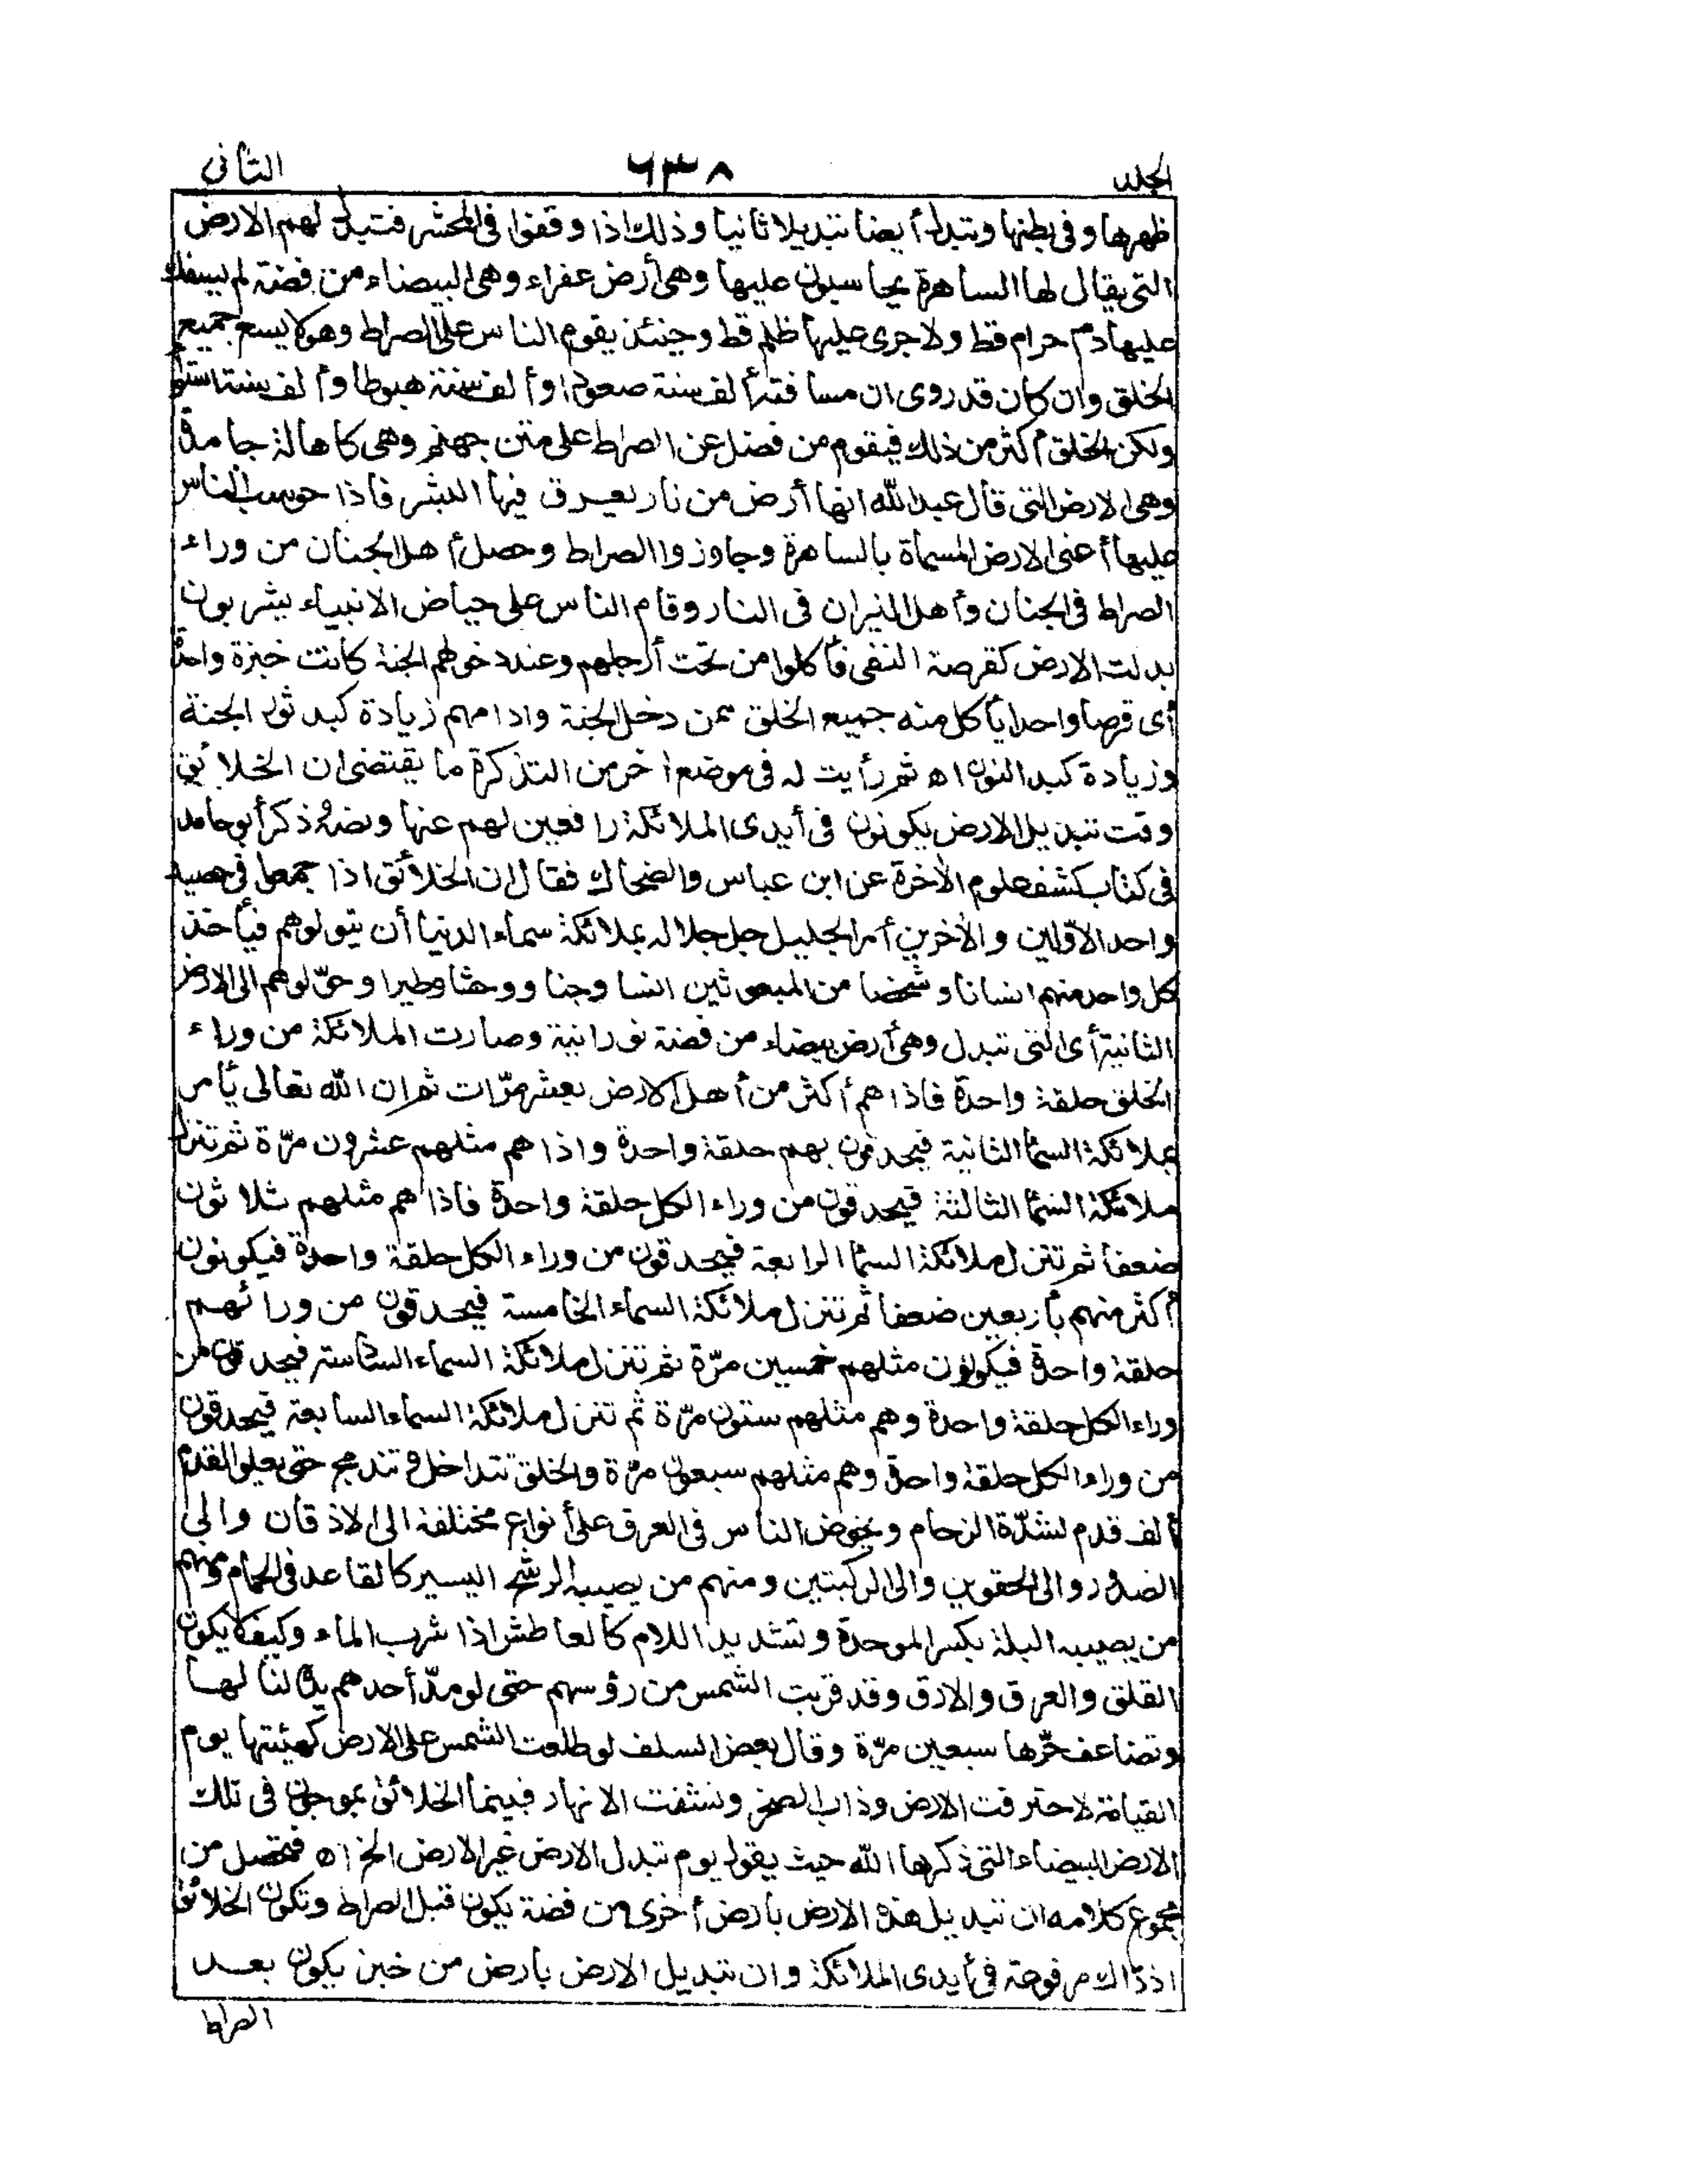 الجلد ٦٣٨ الثانى
ظهرها وفى بطنها وتبدل أيضا تبديلا ثانيا وذلك اذا وقفوا فى المحشر فتبدل لهم الارض
التى يقال لها الساهرة يحاسبون عليها وهى أرض عفراء وهى البيضاء من فضة لم يسفك
عليها دم حرام قط ولا جرى عليها ظلم قط وحينئذ يقوم الناس على الصراط وهو لا يسع جميع
الخلق وان كان قد روى ان مسافته ألف سنة صعودا وألف سنة هبوطا وألف سنة استواء
ولكن الخلق أكثر من ذلك فيقوم من فضل عن الصراط على متن جهنم وهى كاهالة جامدة
وهى الارض التى قال عبد الله انها أرض من نار يعرق فيها البشر فاذا حوسب الناس
عليها أعنى الارض المسماة بالساهرة وجاوزوا الصراط وحصل أهل الجنان من وراء
الصراط فى الجنان وأهل النيران فى النار وقام الناس على حياض الانبياء يشربون
بدلت الارض كقرصة النقى فأكلوا من تحت أرجلهم وعند دخولهم الجنة كانت خبزة واحدة
أى قرصا واحدا يأكل منه جميع الخلق ممن دخل الجنة وادامهم زيادة كبد ثور الجنة
وزيادة كبد النون اه ثم رأيت له فى موضع اخر من التذكرة ما يقتضى ان الخلائق
وقت تبديل الارض يكونون فى أيدى الملائكة رافعين لهم عنها ونصه وذكر أبو حامد
فى كتاب كشف علوم الآخرة عن ابن عباس والضحاك فقال ان الخلائق اذا جمعوا فى صعيد
واحد الاوّلين والآخرين أمر الجليل جل جلاله بملائكة سماء الدنيا أن يتولوهم فيأخذ
كل واحد منهم انسانا وشخصا من المبعوثين انسا وجنا ووحشا وطيرا وحوّلوهم الى الارض
الثانية أى التى تبدل وهى أرض بيضاء من فضة نورانية وصارت الملائكة من وراء
الخلق حلقة واحدة فاذا هم أكثر من أهل الارض بعشر مرّات ثم ان الله تعالى يأمر
بملائكة السماء الثانية فيحدقون بهم حلقة واحدة واذا هم مثلهم عشرون مرّة ثم تنزل
ملائكة السماء الثالثة فيحدقون من وراء الكل حلقة واحدة فاذا هم مثلهم ثلاثون
ضعفا ثم تنزل ملائكة السماء الرابعة فيحدقون من وراء الكل حلقة واحدة فيكونون
أكثر منهم بأربعين ضعفا ثم تنزل ملائكة السماء الخامسة فيحدقون من ورائهم
حلقة واحدة فيكونون مثلهم خمسين مرّة ثم تنزل ملائكة السماء السادسة فيحدقون من
وراء الكل حلقة واحدة وهم مثلهم ستون مرّة ثم تنزل ملائكة السماء السابعة فيحدقون
من وراء الكل حلقة واحدة وهم مثلهم سبعون مرّة والخلق تتداخل وتندمج حتى يعلو القدم
ألف قدم لشدّة الزحام ويخوض الناس فى العرق على أنواع مختلفة الى الاذقان والى
الصدور والى الحقوين والى الركبتين ومنهم من يصيبه الرشح اليسير كالقاعد فى الحمام ومنهم
من يصيبه البلة بكسر الموحدة وتشديد اللام كالعاطش اذا شرب الماء وكيف لا يكون
القلق والعرق والارق وقد قربت الشمس من رؤسهم حتى لو مدّ أحدهم يده لنالها
وتضاعف حرّها سبعين مرّة وقال بعض السلف لو طلعت الشمس على الارض كهيئتها يوم
القيامة لاحترقت الارض وذاب الصخر ونشفت الانهار فبينما الخلائق يموجون فى تلك
الارض البيضاء التى ذكرها الله حيث يقول يوم تبدل الارض غير الارض الخ اه فتحصل من
مجموع كلامه ان تبديل هذه الارض بأرض أخرى من فضة يكون قبل الصراط وتكون الخلائق
اذ ذاك مرفوعة فى أيدى الملائكة وان تبديل الارض بأرض من خبز يكون بعد
الصراط